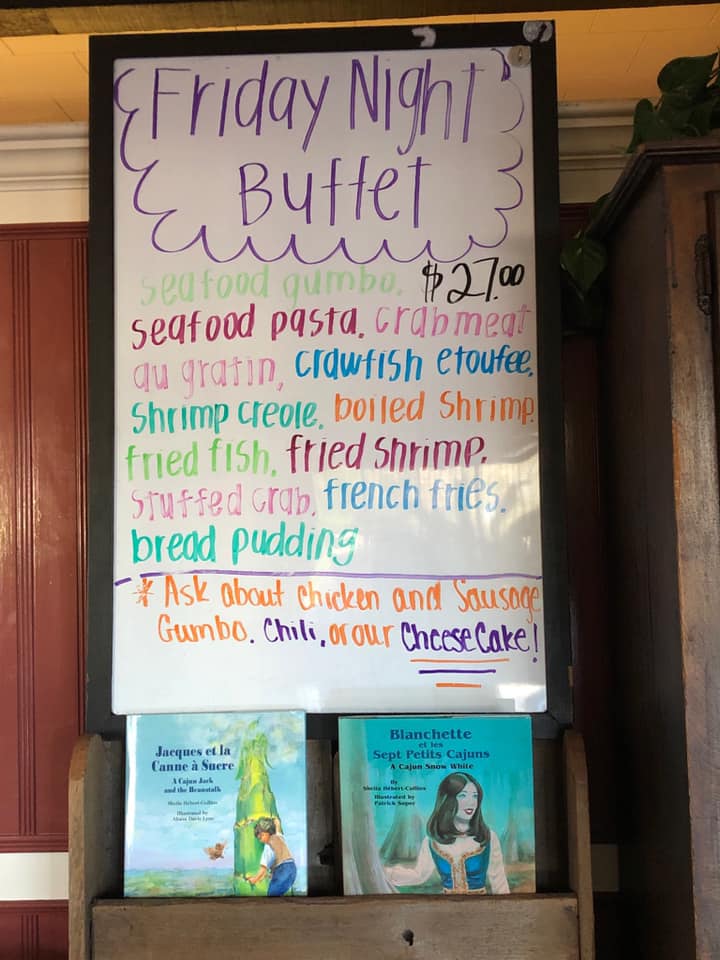 Friday Night
Buffet
seafood gumbo, $27.00
seafood pasta, crabmeat
au gratin, crawfish etoufee,
shrimp creole, boiled shrimp
fried fish, fried shrimp,
stuffed crab, french fries,
bread pudding
* Ask about chicken and Sausage
Gumbo, Chili, or our CheeseCake!
Jacques et la
Canne à Sucre
A Cajun Jack
and the Beanstalk
Sheila Hébert-Collins
Illustrated by
Alison Davis Lyne
Blanchette
et les
Sept Petits Cajuns
A Cajun Snow White
By
Sheila Hébert-Collins
Illustrated by
Patrick Soper